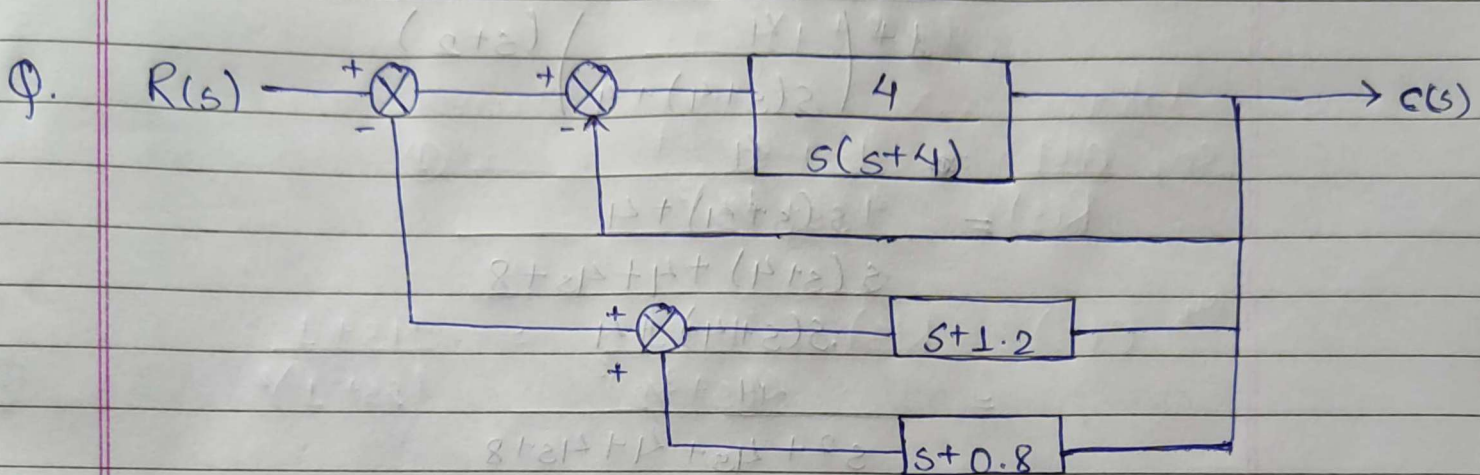 Q. R(s) + - + - 4 / s(s+4) C(s)
+ s+1.2
+
s+0.8